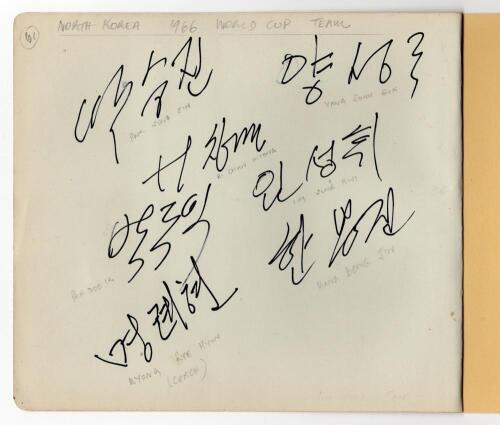 NORTH KOREA 1966 WORLD CUP TEAM
박승진
PAK SUNG ZIN
양성국
YANG SUNG GUK
리찬명
임성휘
박두익
PAK DOO IK
한봉진
HANG BONG ZIN
명례현
MYONG RYE HYUN
(COACH)